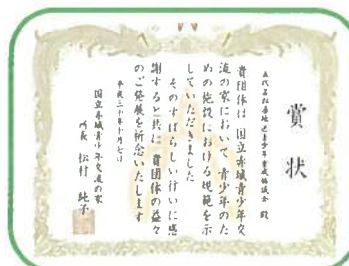 賞状
五代若松原地区青少年育成協議会 殿
貴団体は 国立赤城青少年交
流の家において 青少年のた
めの施設における規範を示
していただきました
そのすばらしい行いに感
謝すると共に 貴団体の益々
のご発展を祈念いたします
平成三十年十月七日
国立赤城青少年交流の家
所長 松村 純子